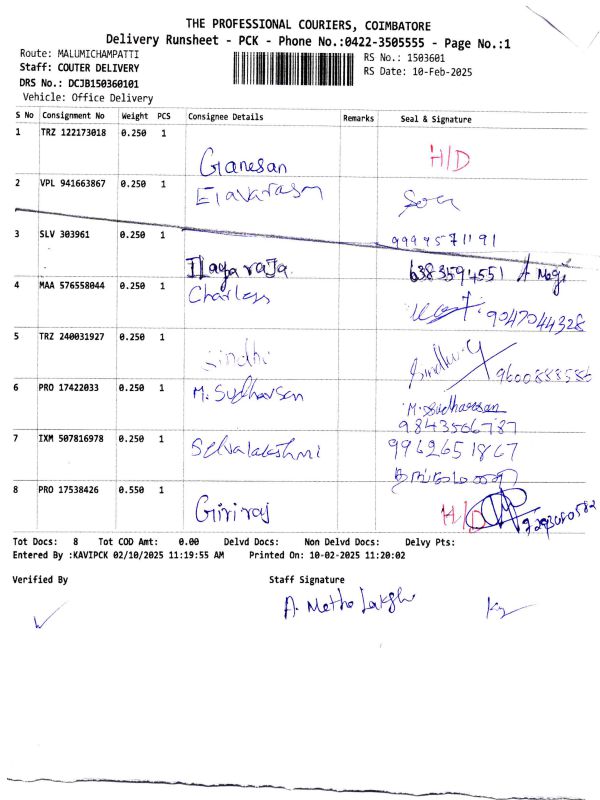 THE PROFESSIONAL COURIERS, COIMBATORE
Delivery Runsheet - PCK - Phone No.:0422-3505555 - Page No.:1
Route: MALUMICHAMPATTI
RS No.: 1503601
Staff: COUTER DELIVERY
RS Date: 10-Feb-2025
DRS No.: DCJB150360101
Vehicle: Office Delivery
S No Consignment No Weight PCS Consignee Details Remarks Seal & Signature
1 TRZ 122173018 0.250 1
Ganesan H/D
2 VPL 941663867 0.250 1
Elavarasn
3 SLV 303961 0.250 1 9999571191
Ilayaraja 6383594551
4 MAA 576558044 0.250 1
Charless 9047044328
5 TRZ 240031927 0.250 1
Sindhi Sindhu.G 9600888586
6 PRO 17422033 0.250 1
M. Sudharsan M. Sudharsan
9843566787
7 IXM 507816978 0.250 1 9962651867
Selvalakshmi
8 PRO 17538426 0.550 1
Giriraj H/D
Tot Docs: 8 Tot COD Amt: 0.00 Delvd Docs: Non Delvd Docs: Delvy Pts:
Entered By :KAVIPCK 02/10/2025 11:19:55 AM Printed On: 10-02-2025 11:20:02
Verified By Staff Signature